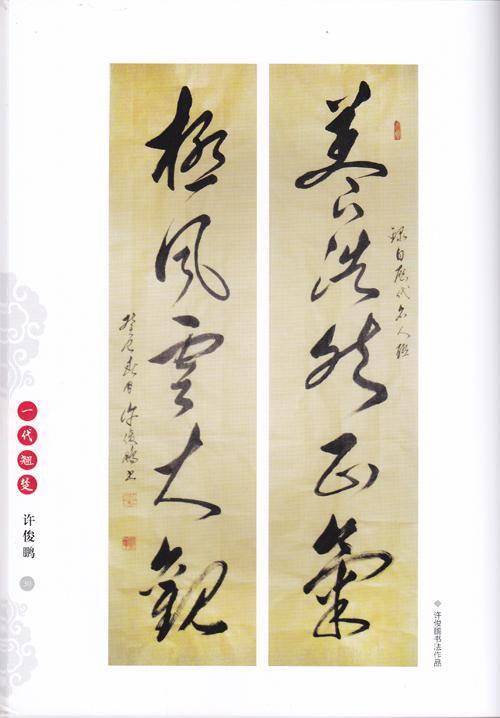 養浩然正氣
録自歷代名人聯
極風雲大觀
癸巳春月许俊鹏书
一代翘楚
许俊鹏
许俊鹏书法作品